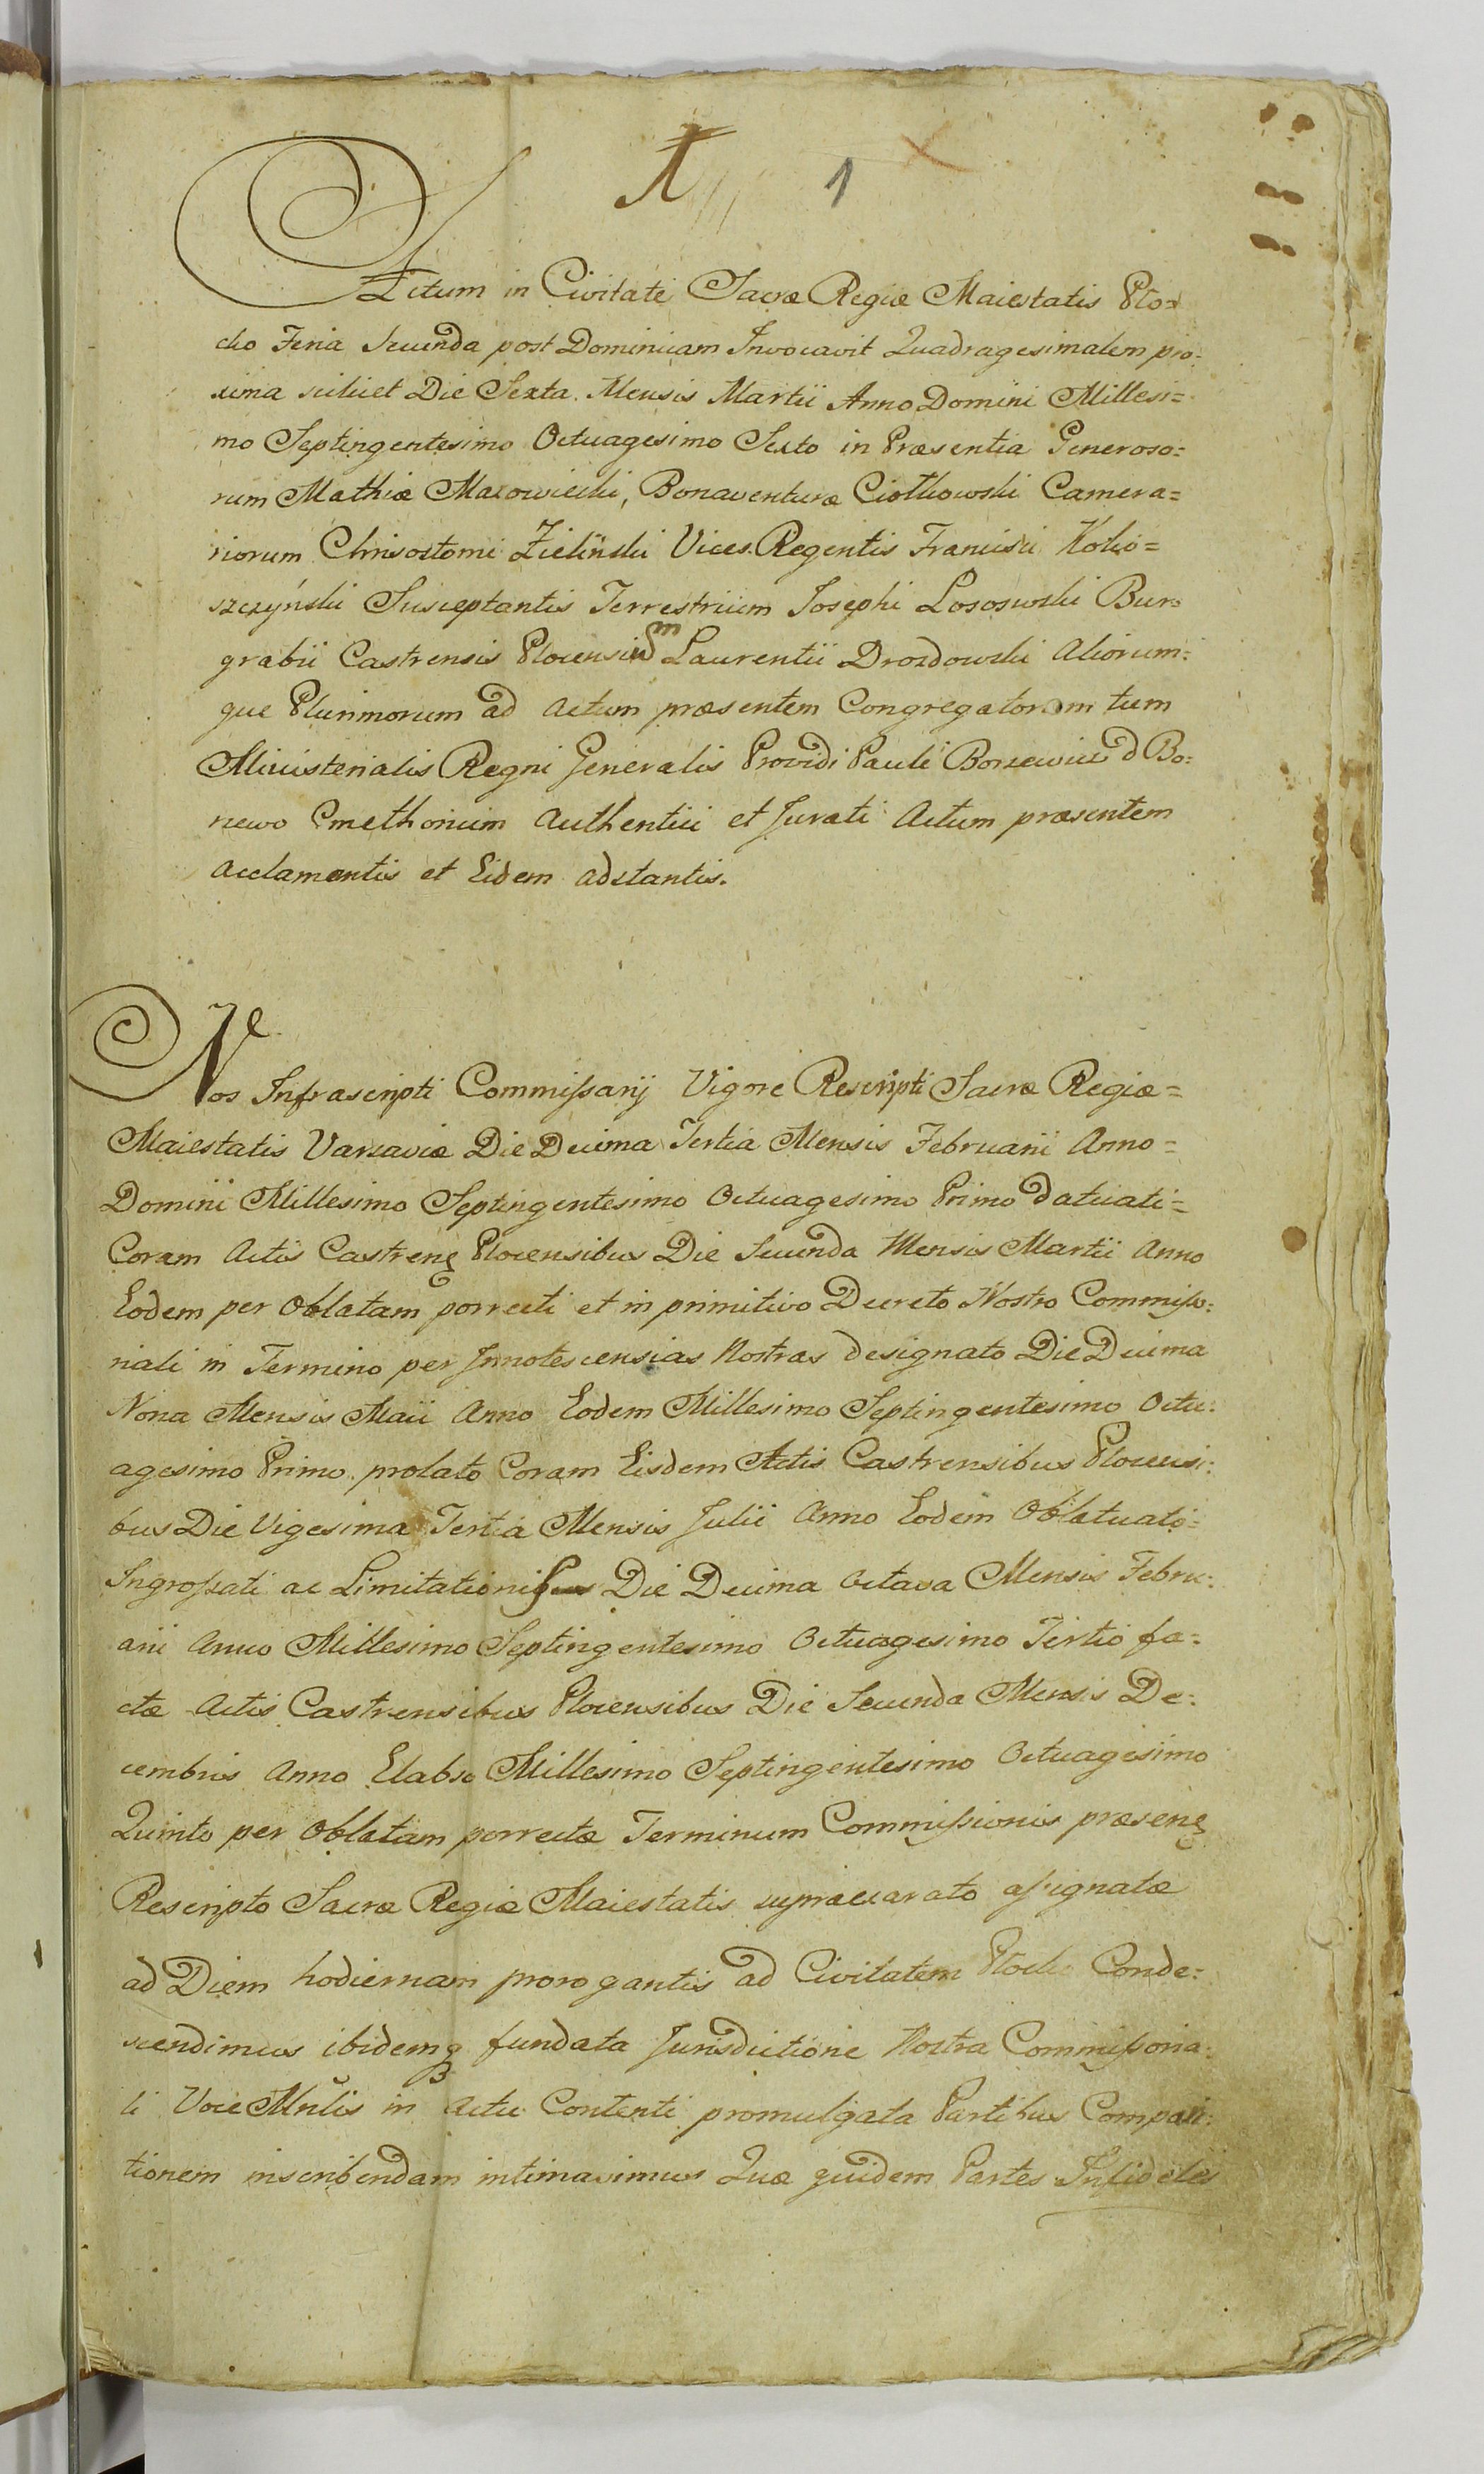 A 1
Actum in Civitate Sacræ Regiæ Maiestatis Plo=
cko Feria Secunda post Dominicam Invocavit Quadragesimalem pro=
xima scilicet Die Sexta Mensis Martii Anno Domini Millesi=
mo Septingentesimo Octuagesimo Sexto in Præsentia Generoso=
rum Mathiæ Mazowiecki, Bonaventuræ Ciołkowski Camera=
riorum Chrisostomi Zieliński Vices Regentis Francisci Koko=
szczyński Susceptantis Terrestrium Josephi Lososwski Bur=
grabii Castrensis Plocensium Laurentii Drozdowski Aliorum=
que Plurimorum ad Actum præsentem Congregatorum tum
Ministerialis Regni Generalis Providi Pauli d Bo=
newo Cmethonum Authentici et Jurati Actum præsentem
Acclamantis et Eidem adstantis.
Nos Infrascripti Commissarij Vigore Rescripti Sacræ Regiæ=
Maiestatis Varsaviæ Die Decima Tertia Mensis Februarii Anno=
Domini Millesimo Septingentesimo Octuagesimo Primo datuati=
Coram Actis Castrenę Plocensibus Die Secunda Mensis Martii Anno
Eodem per Oblatam porrecti et in primitivo Decreto Nostro Commisso=
riali in Termino per Innotescensias Nostras designato Die Decima
Nona Mensis Maii Anno Eodem Millesimo Septingentesimo Octu=
agesimo Primo prolato Coram Eisdem Actis Castrensibus Plocensi=
bus Die Vigesima Tertia Mensis Julii Anno Eodem Oblatuato=
Ingrossati ac Limitationis Die Decima Octava Mensis Febru=
arii Anno Millesimo Septingentesimo Octuagesimo Tertio fa=
ctæ Actis Castrensibus Plocensibus Die Secunda Mensis De=
cembris Anno Elabso Millesimo Septingentesimo Octuagesimo
Quinto per Oblatam porrectæ Terminum Commissionis præsenę
Rescripto Sacræ Regiæ Maiestatis supraexarato assignatæ
ad Diem hodiernam prorogantis ad Civitatem Płocko Conde=
scendimus ibidemq fundata Jurisdictione Nostra Commissoria=
li Voce Mnlis in Actu Contenti promulgata Partibus Compari=
tionem inscribendam intimavimus Quæ quidem Partes Infideles